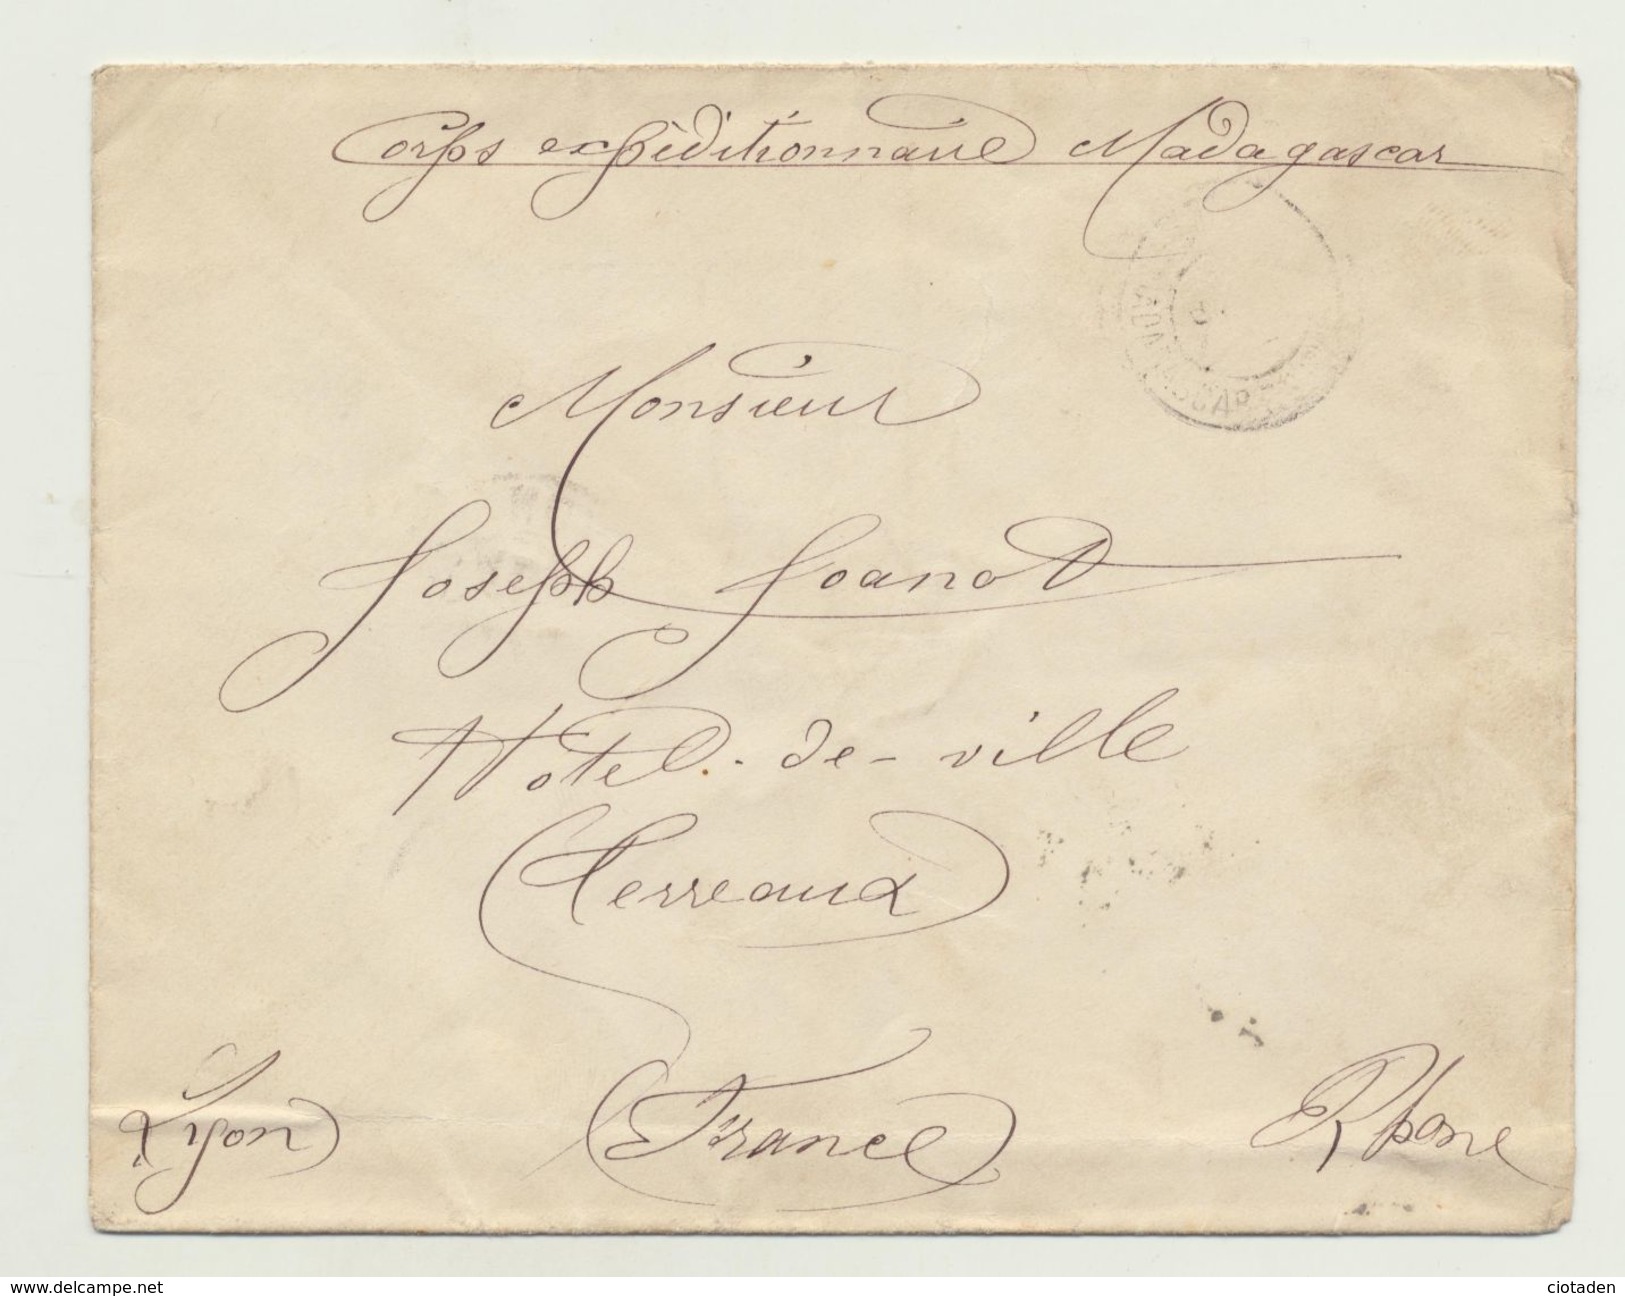 Corps expéditionnaire Madagascar
Monsieur
Joseph Joanot
Hotel-de-ville
Terreaux
Lyon (France) Rhone
www.delcampe.net ciotaden